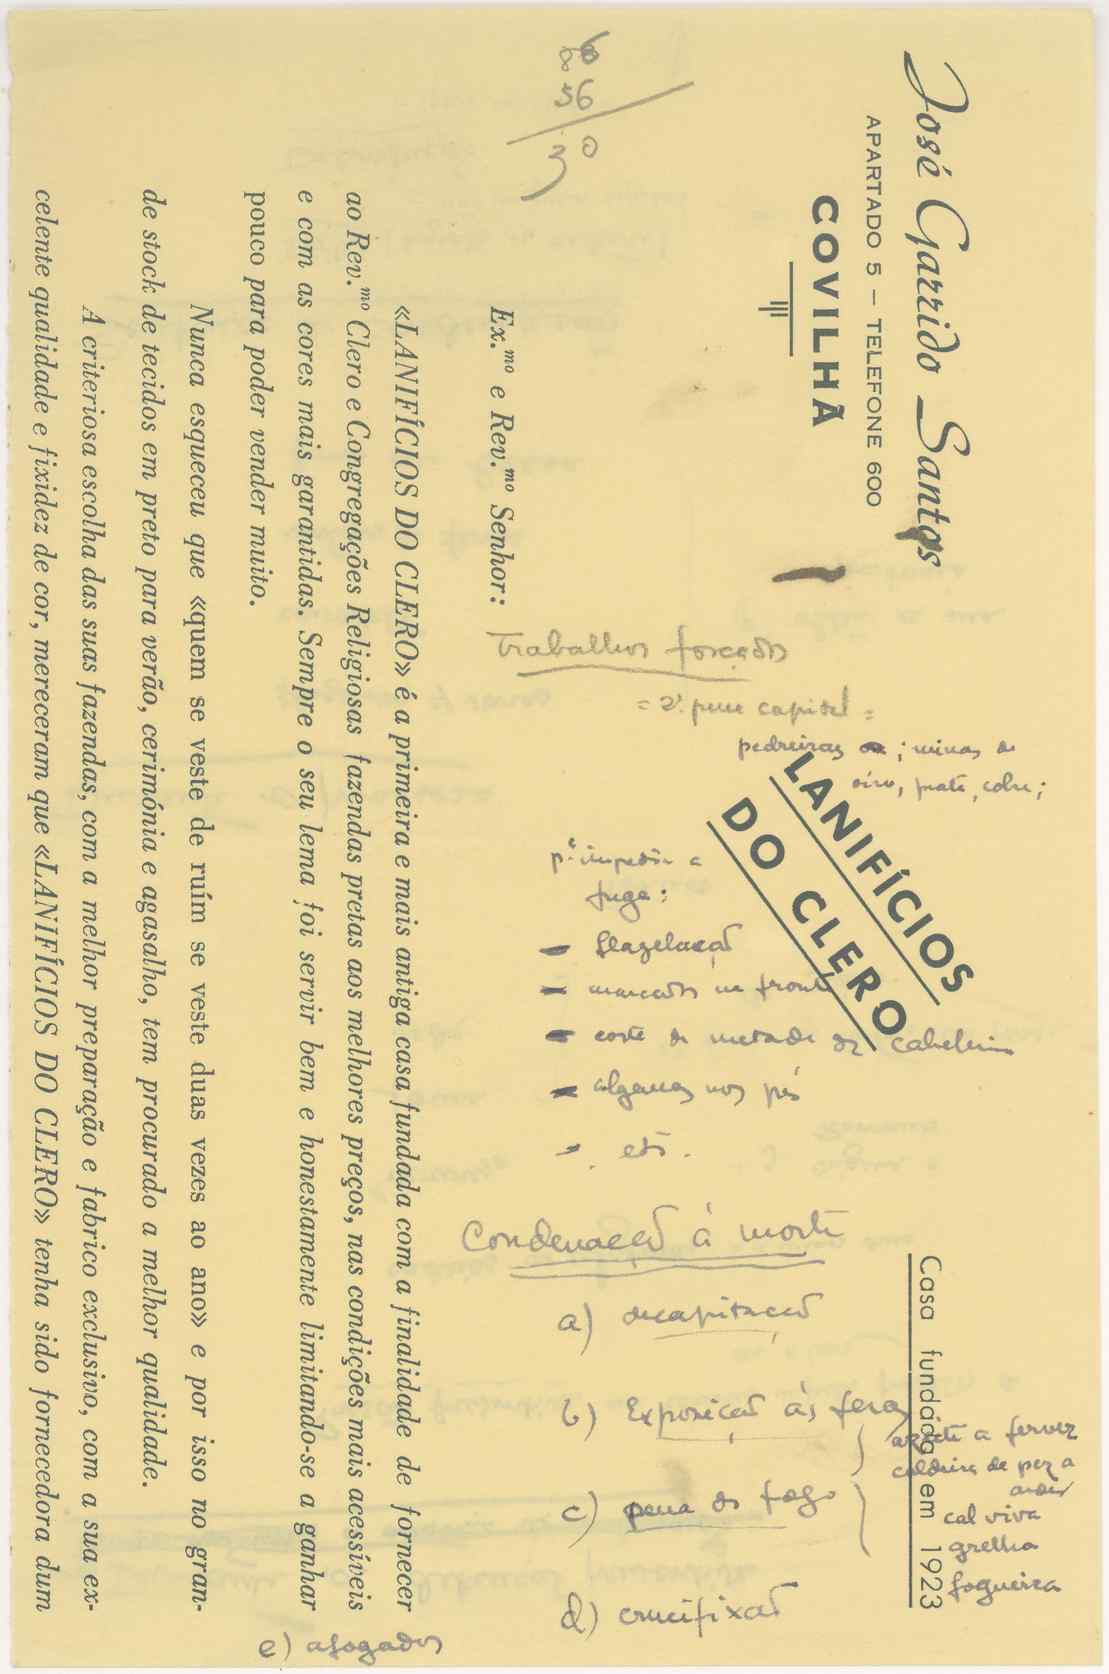 José Garrido Santos
APARTADO 5 — TELEFONE 600
COVILHÃ
LANIFÍCIOS
DO CLERO
Casa fundada em 1923
Ex.mo e Rev.mo Senhor:
«LANIFÍCIOS DO CLERO» é a primeira e mais antiga casa fundada com a finalidade de fornecer
ao Rev.mo Clero e Congregações Religiosas fazendas pretas aos melhores preços, nas condições mais acessíveis
e com as cores mais garantidas. Sempre o seu lema foi servir bem e honestamente limitando-se a ganhar
pouco para poder vender muito.
Nunca esqueceu que «quem se veste de ruím se veste duas vezes ao ano» e por isso no gran-
de stock de tecidos em preto para verão, cerimónia e agasalho, tem procurado a melhor qualidade.
A criteriosa escolha das suas fazendas, com a melhor preparação e fabrico exclusivo, com a sua ex-
celente qualidade e fixidez de cor, mereceram que «LANIFÍCIOS DO CLERO» tenha sido fornecedora dum
86
56
30
Trabalhos forçados
= 2ª pena capital =
pedreiras ; minas de
oiro, prata, cobre;
pª impedir a
fuga:
- flagelação
- marcados na fronte
- corte de metade da cabeleira
- algemas nos pés
- etc.
Condenação à morte
a) decapitação
b) Exposição às feras
c) pena do fogo
azeite a ferver
caldeira de pez a
arder
cal viva
grelha
fogueira
d) crucifixão
e) afogados